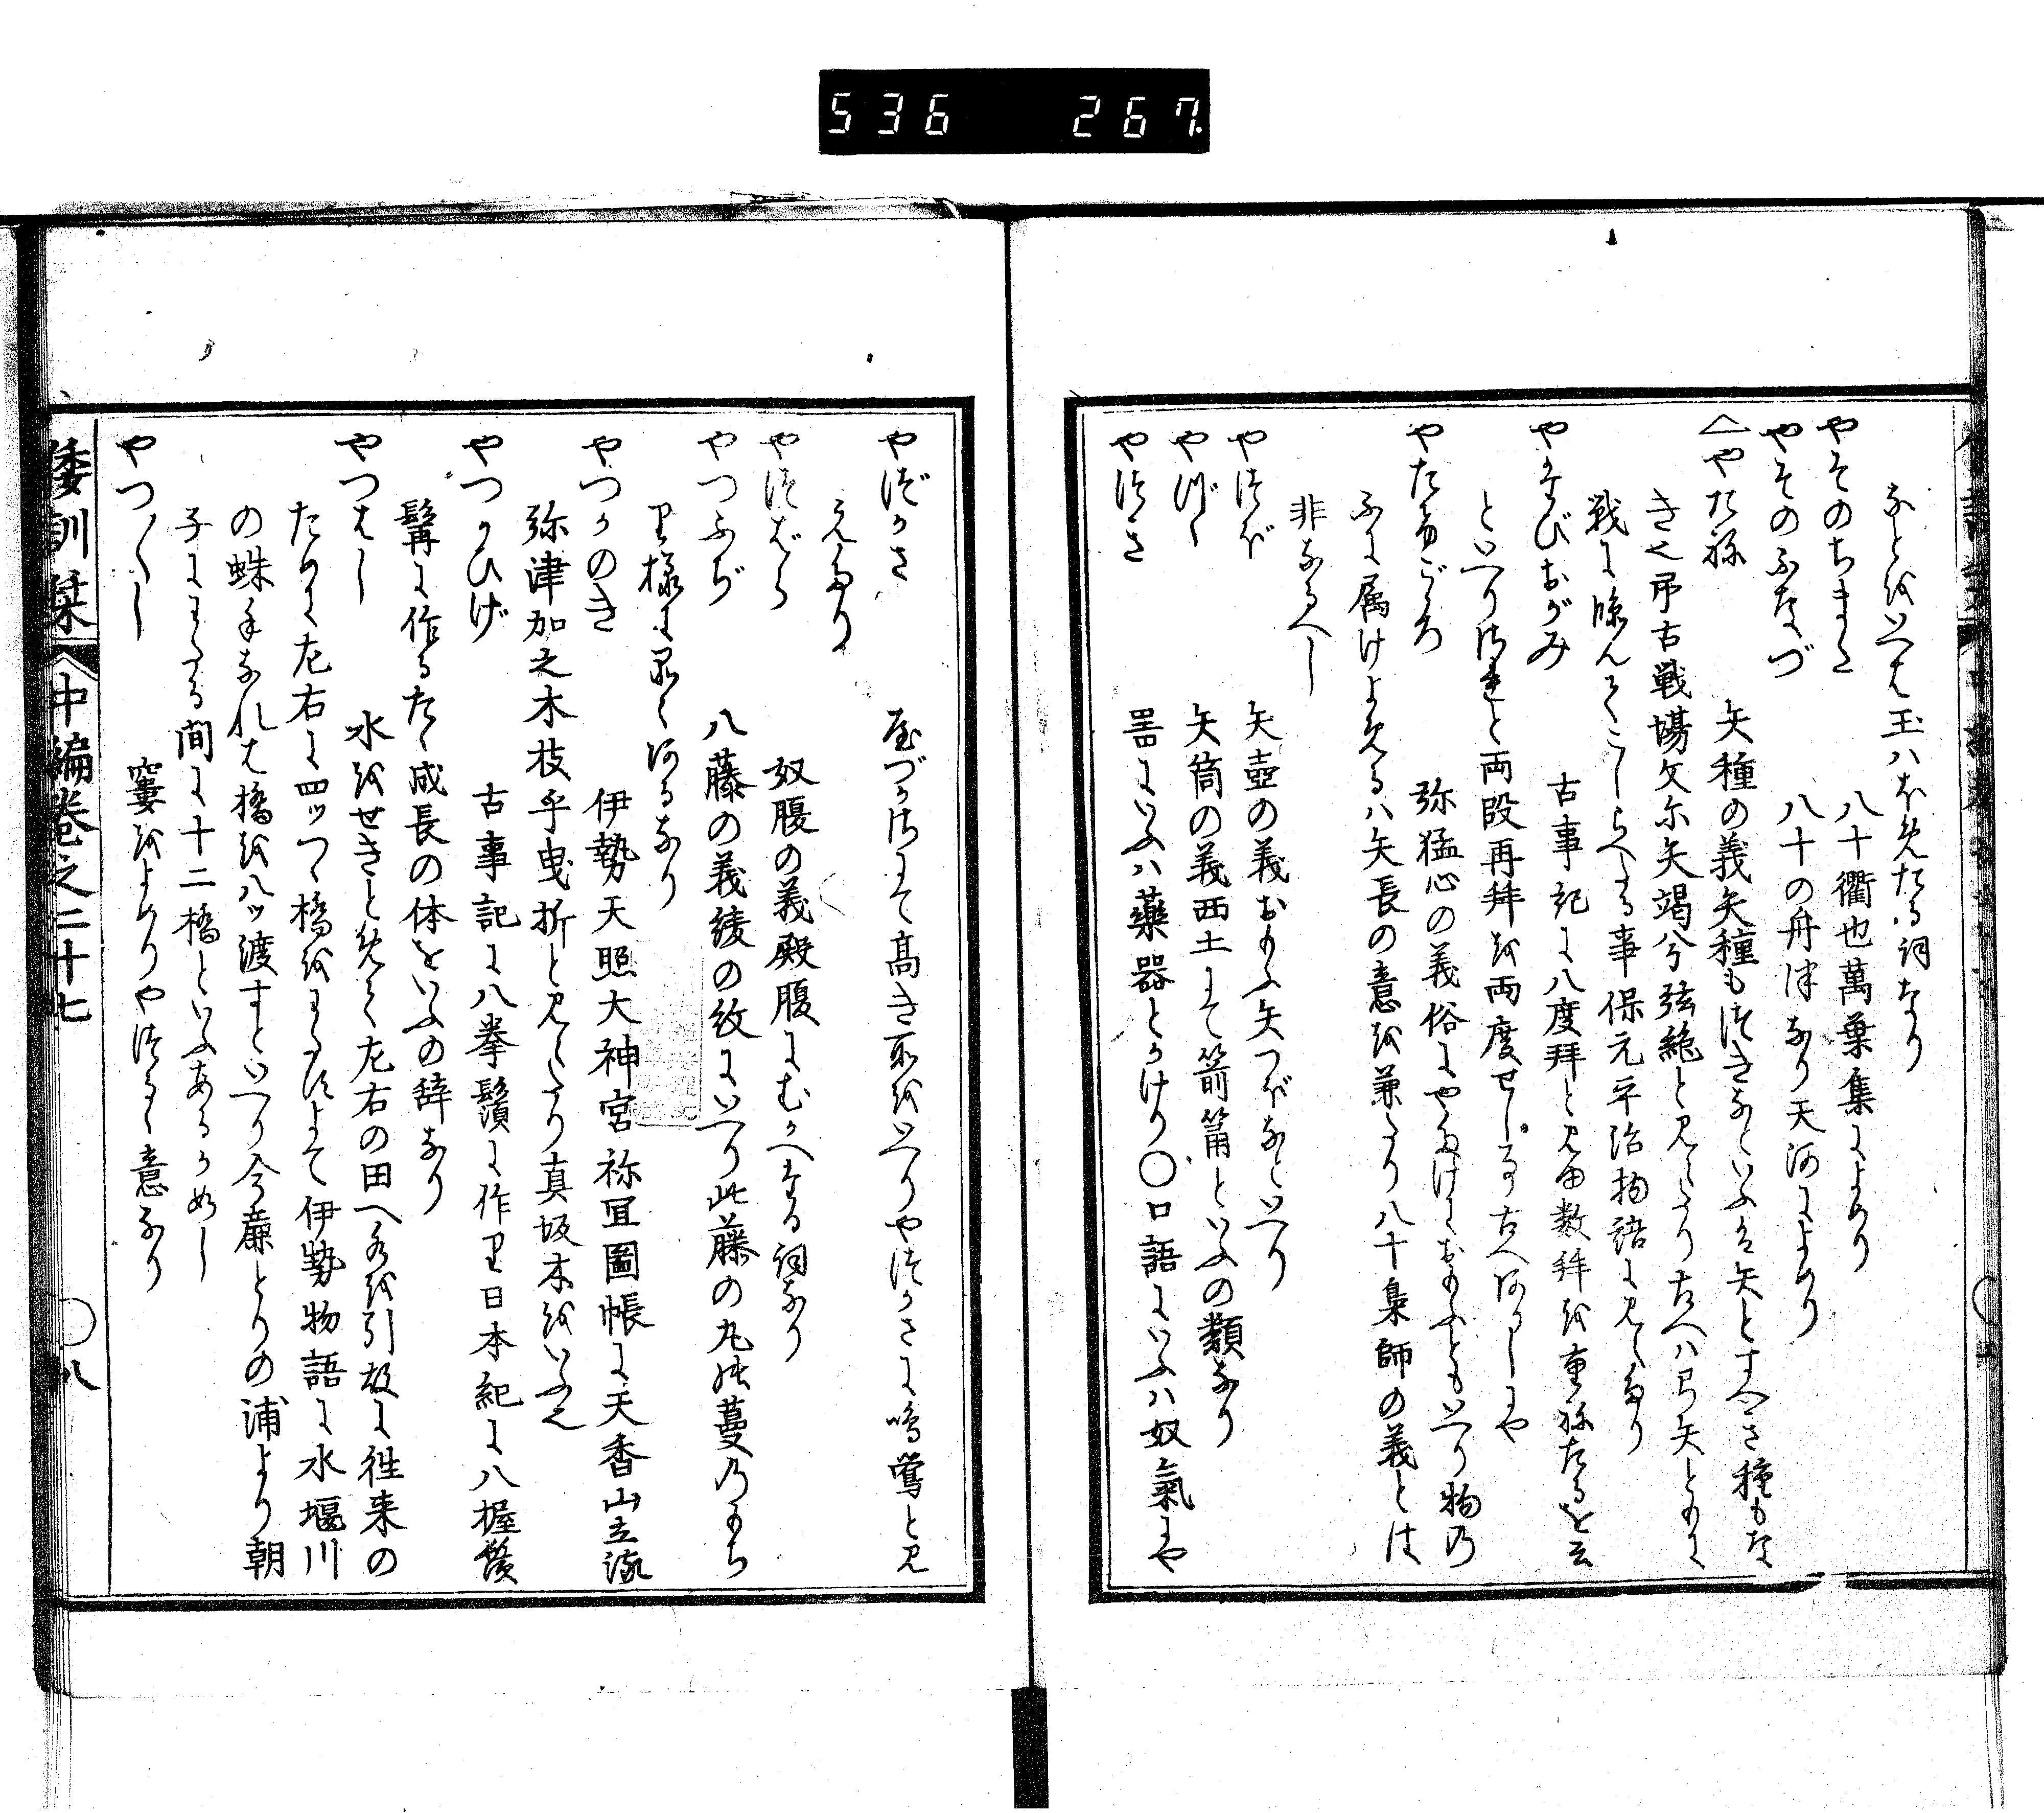 536 267
なとをいへは玉ハほめたる詞なり
やそのちまた 八十衢也萬葉集によめり
やそのふなづ 八十の舟津なり天河によめり
やた禰 矢種の義矢種もつきなといふは矢とすへき種もな
き也弔古戦塲文尓矢竭兮弦絶と見えたり古へハ弓矢ともに
戦に臨んてこしらへする事保元平治物語に見えたり
やたびおがみ 古事記に八度拜と見ゆ数拜を重ねたるを云
といへり されと両段再拜を両度せし事古へありしにや
やたけごゝろ 弥猛心の義俗にやたけにおもふともいへり物乃
ふに属けよめるハ矢長の意を兼たり八十梟師の義とは
非なるへし
やつぼ 矢壺の義おもふ矢つぼなといへり
やづゝ 矢筒の義西土にて箭箙といふの類なり
やつき 噐にいふハ藥器とかけり〇口語にいふハ奴氣にや
やづかさ 屋づかさにて高き所をいへりやつかさに鳴鶯と見
えたり
やつばら 奴腹の義殿腹にむかへたる詞なり
やつふぢ 八藤の義綾の紋にいへり此藤の丸は蔓乃もち
里様に果くあるなり
やつかのき 伊勢天照大神宮祢冝圖帳に天香山立流
弥津加之木枝乎曳折と見えたり真坂木をいふ也
やつかひげ 古事記に八拳鬚に作里日本紀に八握鬚
髯に作るたゝ成長の体をいふの辞なり
やつはし 水をせきとめて左右の田へ水を引故に徃来の
ために左右に四ッつゝ橋をわたすよて伊勢物語に水堰川
の蛛手なれは橋を八ッ渡すといへり今鹿とりの浦より朝
子にわたる間に十二橋といふあるか如し
やつ〳〵し 窶をよめりやつるゝ意なり
倭訓栞 中編巻之二十七 〇八